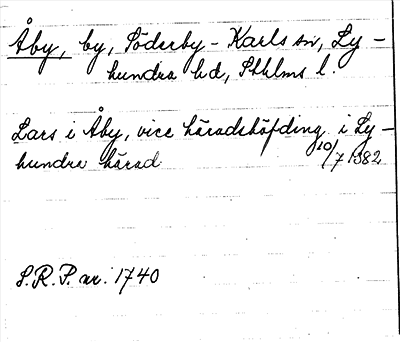 Åby, by, Söderby-Karls sn, Ly-
hundra hd, Sthlms l.
Lars i Åby, vice häradshöfding i Ly-
hundra härad 10/7 1382
S.R.P. nr. 1740